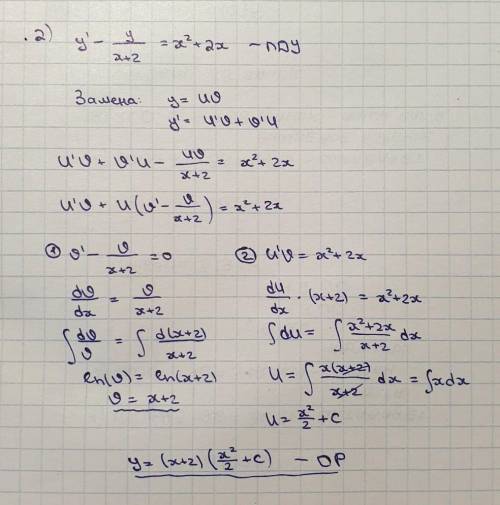 .2) y' - y/(x+2) = x² + 2x - ЛДУ
Замена: y = uv
y' = u'v + v'u
u'v + v'u - uv/(x+2) = x² + 2x
u'v + u(v' - v/(x+2)) = x² + 2x
① v' - v/(x+2) = 0
dv/dx = v/(x+2)
∫ dv/v = ∫ d(x+2)/(x+2)
ln(v) = ln(x+2)
v = x+2
② u'v = x² + 2x
du/dx · (x+2) = x² + 2x
∫du = ∫ (x²+2x)/(x+2) dx
u = ∫ x(x+2)/(x+2) dx = ∫xdx
u = x²/2 + c
y = (x+2)(x²/2 + c) - ОР